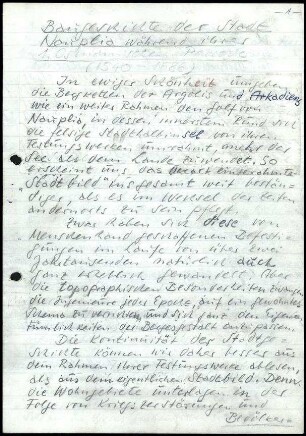 - 1 -
Baugeschichte der Stadt
Nauplia während ihres
In ewiger Schönheit umziehen
die Bergketten der Argolis und Arkadiens
wie ein weiter Rahmen den Golf von
Nauplia, in dessen innerstem Rund sich
die felsige Stadthalbinsel von ihren
Festungswerken umrahmt, mehr der
See als dem Lande zuwendet. So
erscheint uns das derart eingerahmte
"Stadtbild" insgesamt weit bestän-
diger, als es im Wechsel der Zeiten
andernorts zu sein pflegt.
Zwar haben sich diese von
Menschenhand geschaffenen Befesti-
gungen im Laufe von über zwei
Jahrtausenden natürlich auch
ganz erheblich gewandelt. Aber
die topographischen Besonderheiten zwangen
die Ingenieure jeder Epoche, auf ein gewohntes
Schema zu verzichten und sich ganz den Eigen-
tümlichkeiten der Bergesgestalt anzupassen.
Die Kontinuität der Stadtge-
schichte können wir daher besser aus
dem Rahmen ihrer Festungswerke ablesen,
als aus dem eigentlichen Stadtbild. Denn
die Wohngebiete unterlagen in der
Folge von Kriegszerstörungen und